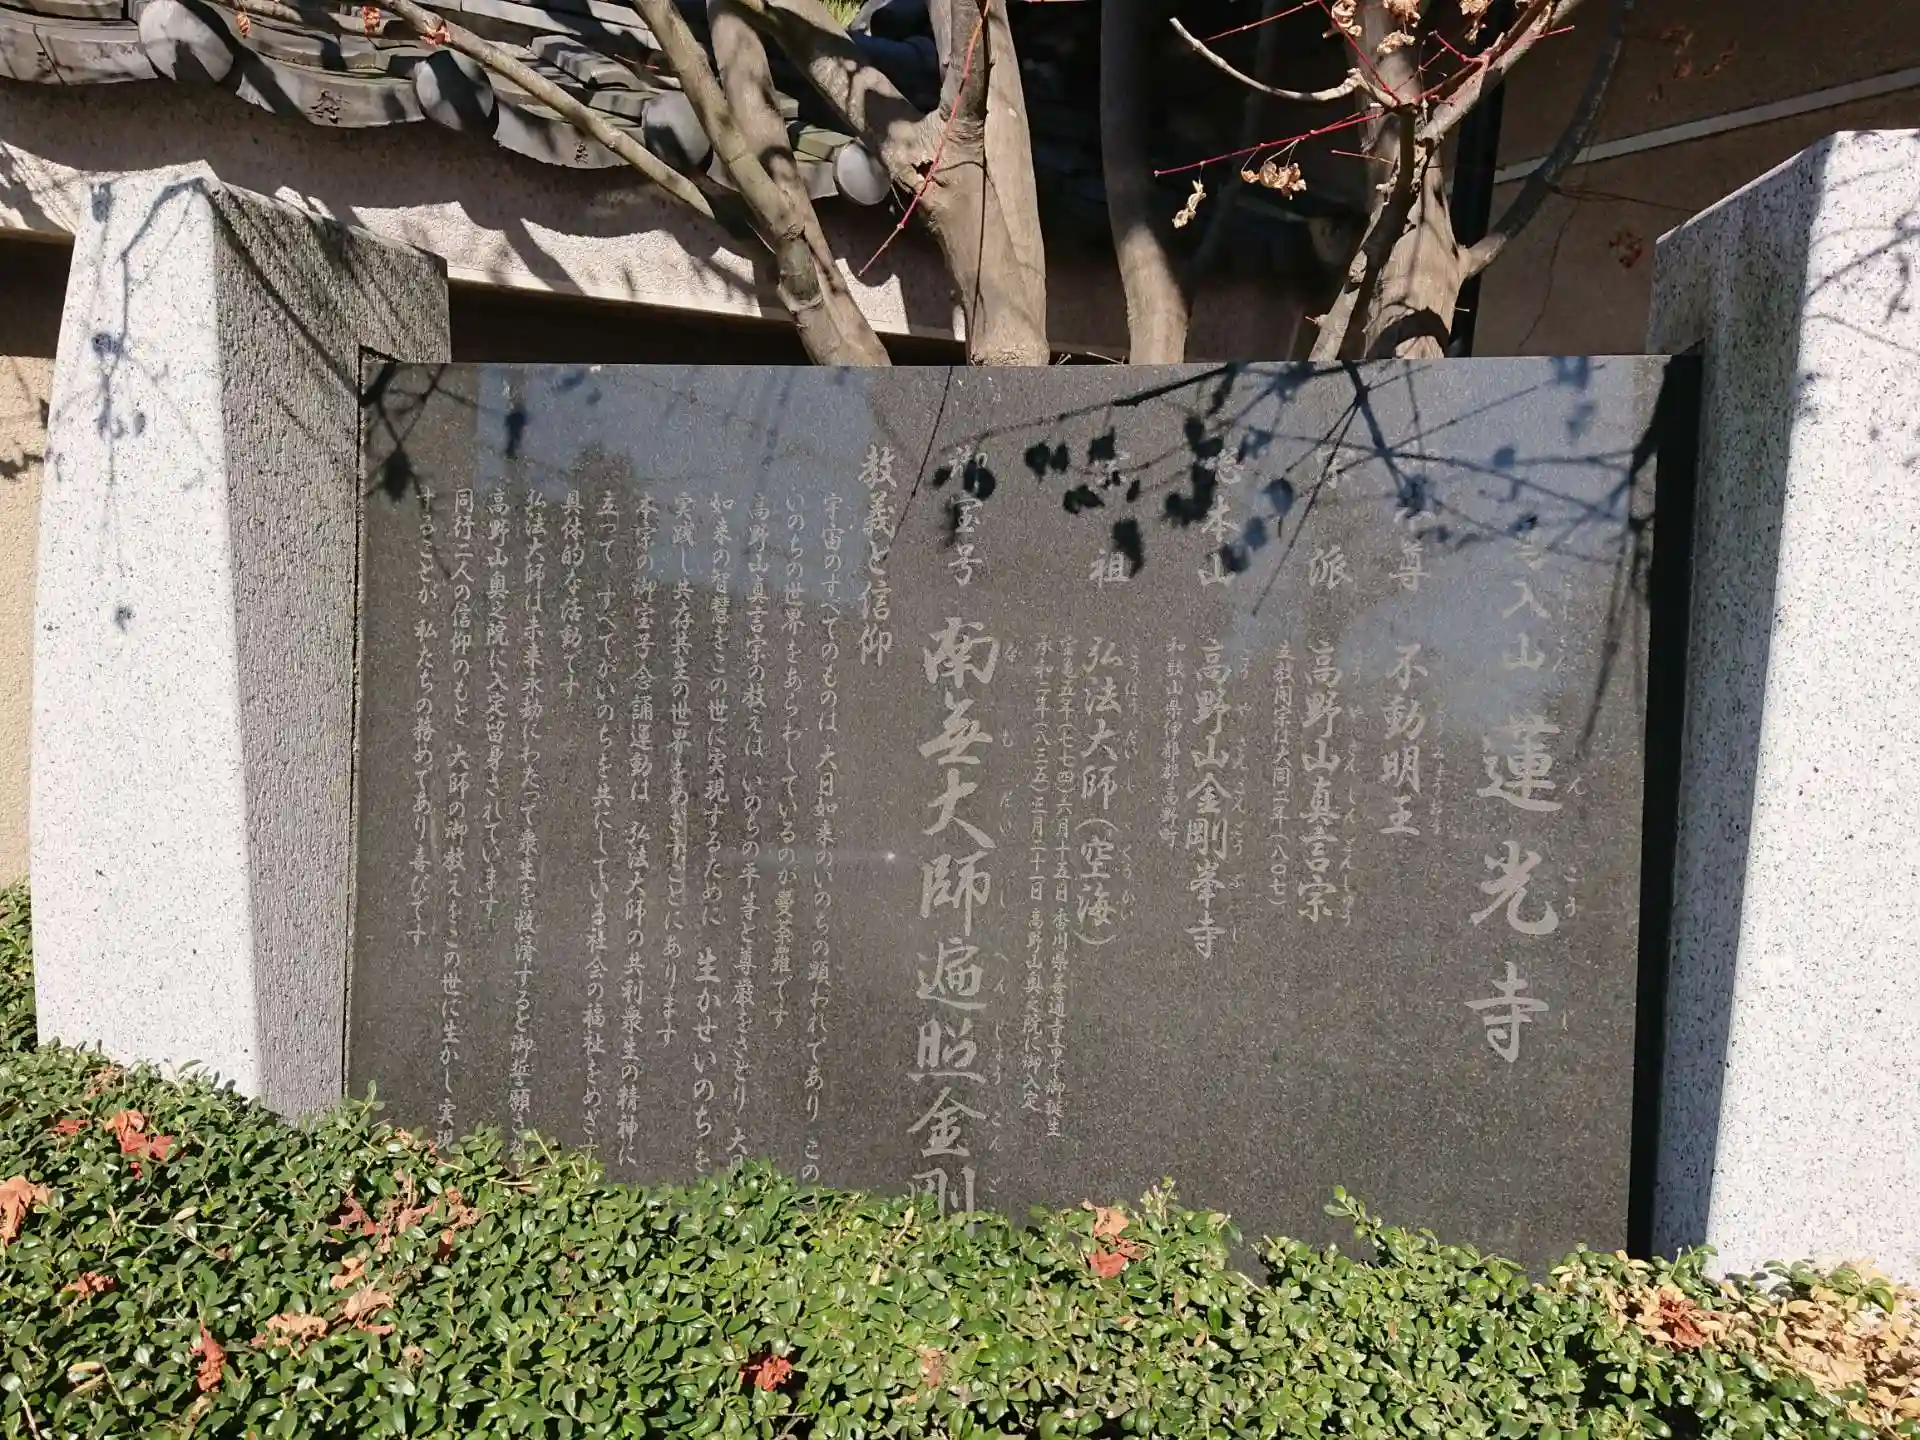 入山 蓮光寺
尊 不動明王
派 高野山真言宗
立教開宗は大同二年(八〇七)
総本山 高野山金剛峯寺
和歌山県伊都郡高野町
宗祖 弘法大師(空海)
宝亀五年(七七四)六月十五日 香川県善通寺里で御誕生
承和二年(八三五)三月二十一日 高野山奥之院に御入定
御宝号 南無大師遍照金剛
教義と信仰
宇宙のすべてのものは 大日如来のいのちの顕われであり この
いのちの世界をあらわしているのが曼荼羅です
高野山真言宗の教えは いのちの平等と尊厳をさとり 大日
如来の智慧をこの世に実現するために 生かせいのちを
実践し共存共生の世界をめざすことにあります
本宗の御宝号念誦運動は 弘法大師の共利衆生の精神に
立って すべてがいのちを共にしている社会の福祉をめざす
具体的な活動です
弘法大師は未来永劫にわたって衆生を救済すると御誓願され
高野山奥之院に入定留身されています
同行二人の信仰のもと 大師の御教えをこの世に生かし実現
することが 私たちの務めであり喜びです